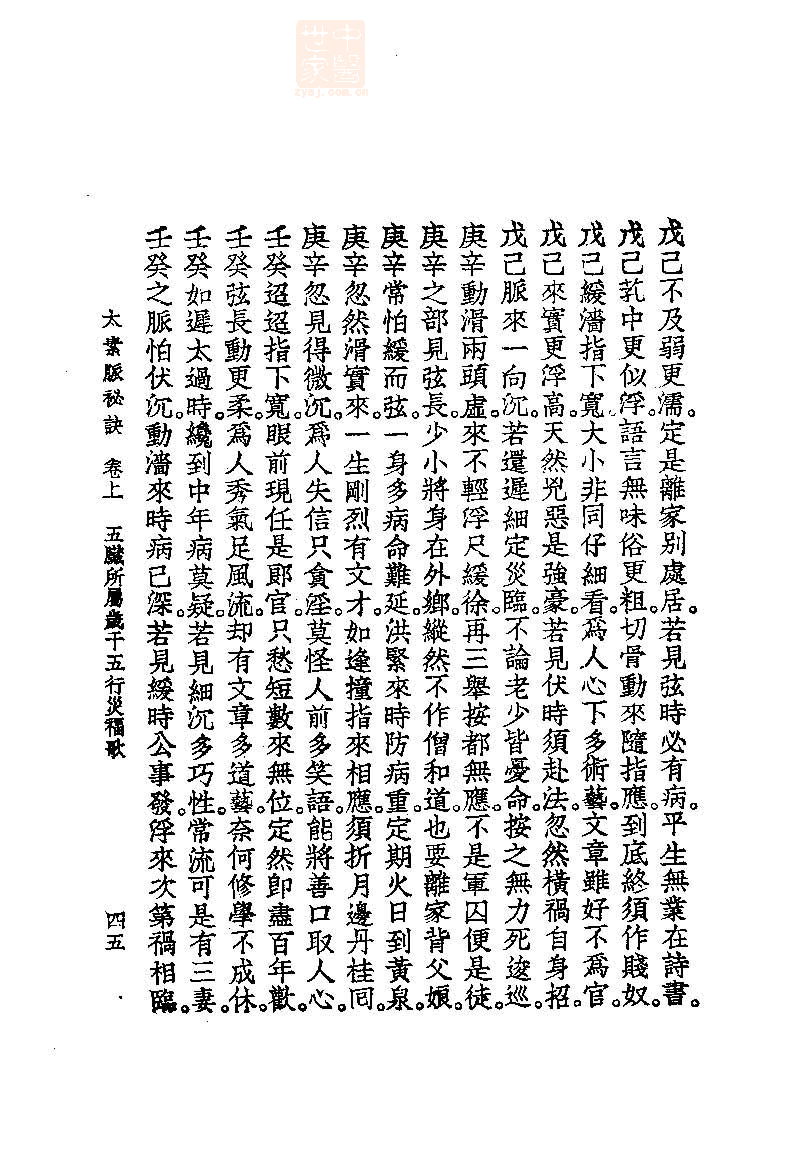 中醫世家
zysj.com.cn
戊己不及弱更濡。定是離家別處居。若見弦時必有病。平生無業在詩書。
戊己芤中更似浮。語言無味俗更粗。切骨動來隨指應。到底終須作賤奴。
戊己緩濇指下寬。大小非同仔細看。爲人心下多術藝。文章雖好不爲官。
戊己來實更浮高。天然兇惡是強豪。若見伏時須赴法。忽然橫禍自身招。
戊己脈來一向沉。若還遲細定災臨。不論老少皆憂命。按之無力死逡巡。
庚辛動滑兩頭虛。來不輕浮尺緩徐。再三舉按都無應。不是軍囚便是徒。
庚辛之部見弦長。少小將身在外鄉。縱然不作僧和道。也要離家背父娘。
庚辛常怕緩而弦。一身多病命難延。洪緊來時防病重。定期火日到黃泉。
庚辛忽然滑實來。一生剛烈有文才。如逢撞指來相應。須折月邊丹桂回。
庚辛忽見得微沉。爲人失信只貪淫。莫怪人前多笑語。能將善口取人心。
壬癸迢迢指下寬。眼前現任是郎官。只愁短數來無位。定然即盡百年歡。
壬癸弦長動更柔。爲人秀氣足風流。却有文章多道藝。奈何修學不成休。
壬癸如遲太過時。纔到中年病莫疑。若見細沉多巧性。常流可是有三妻。
壬癸之脈怕伏沉。動濇來時病已深。若見緩時公事發。浮來次第禍相臨。
太素脈祕訣 卷上 五臟所屬歲干五行災福歌 四五